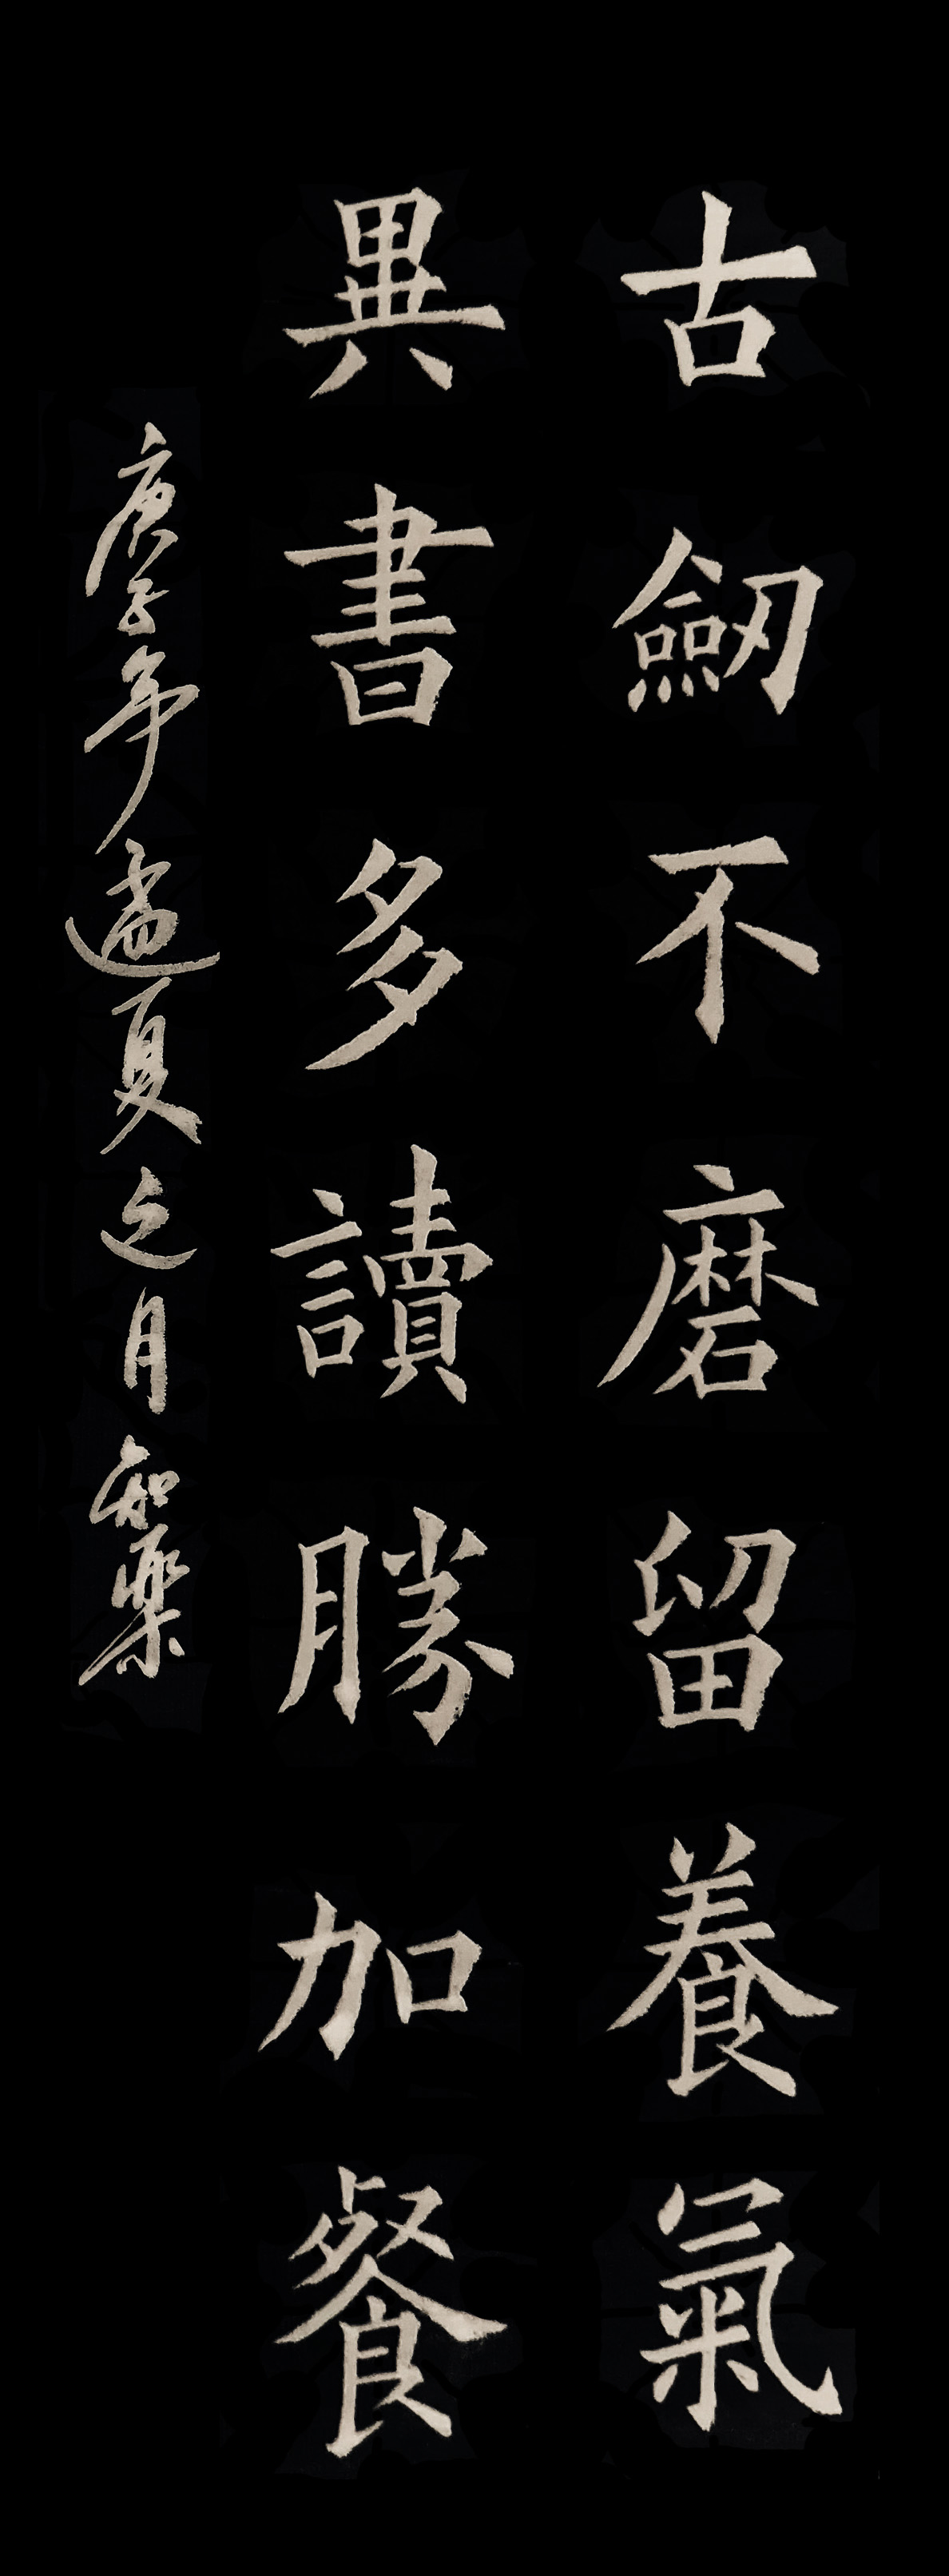 古劒不磨留養氣
異書多讀勝加餐
庚子年孟夏之月知樂